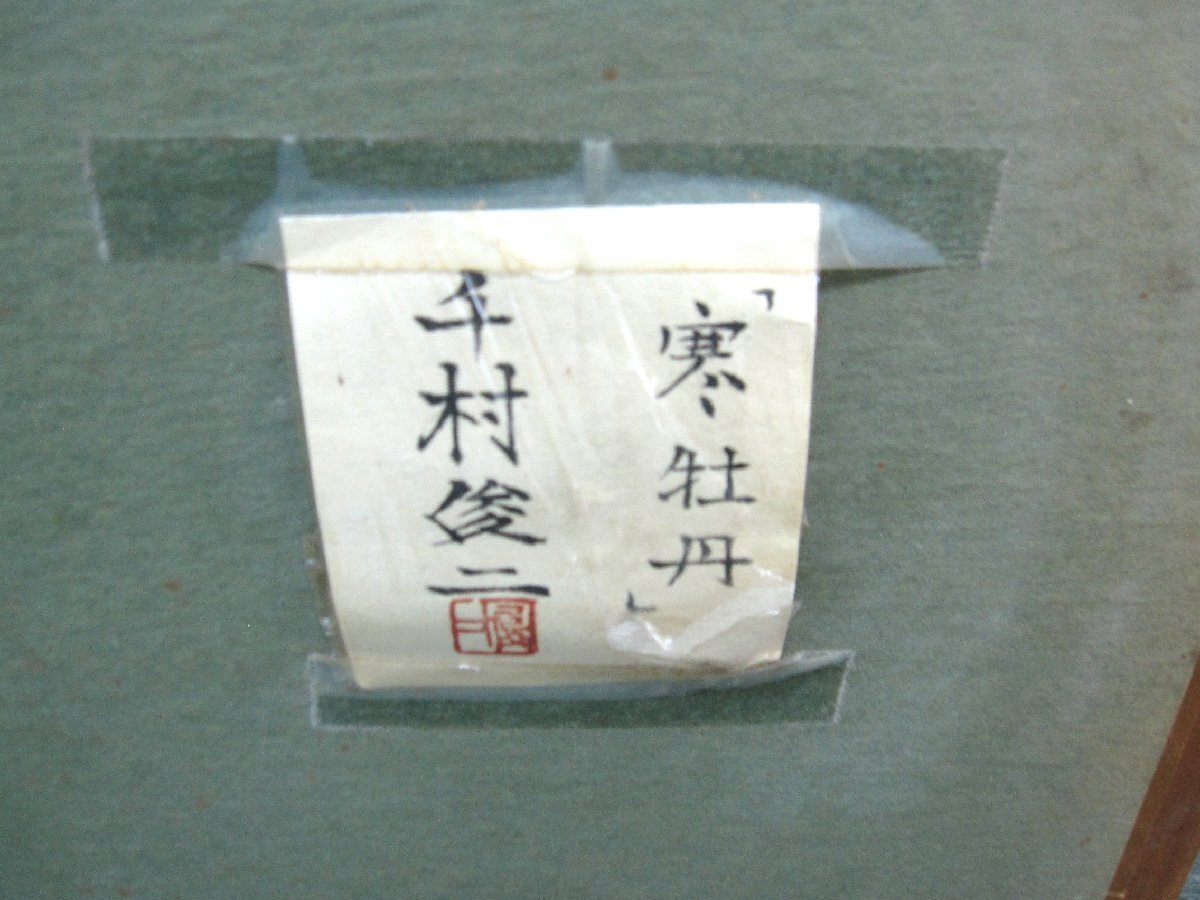 「寒牡丹」
千村俊二